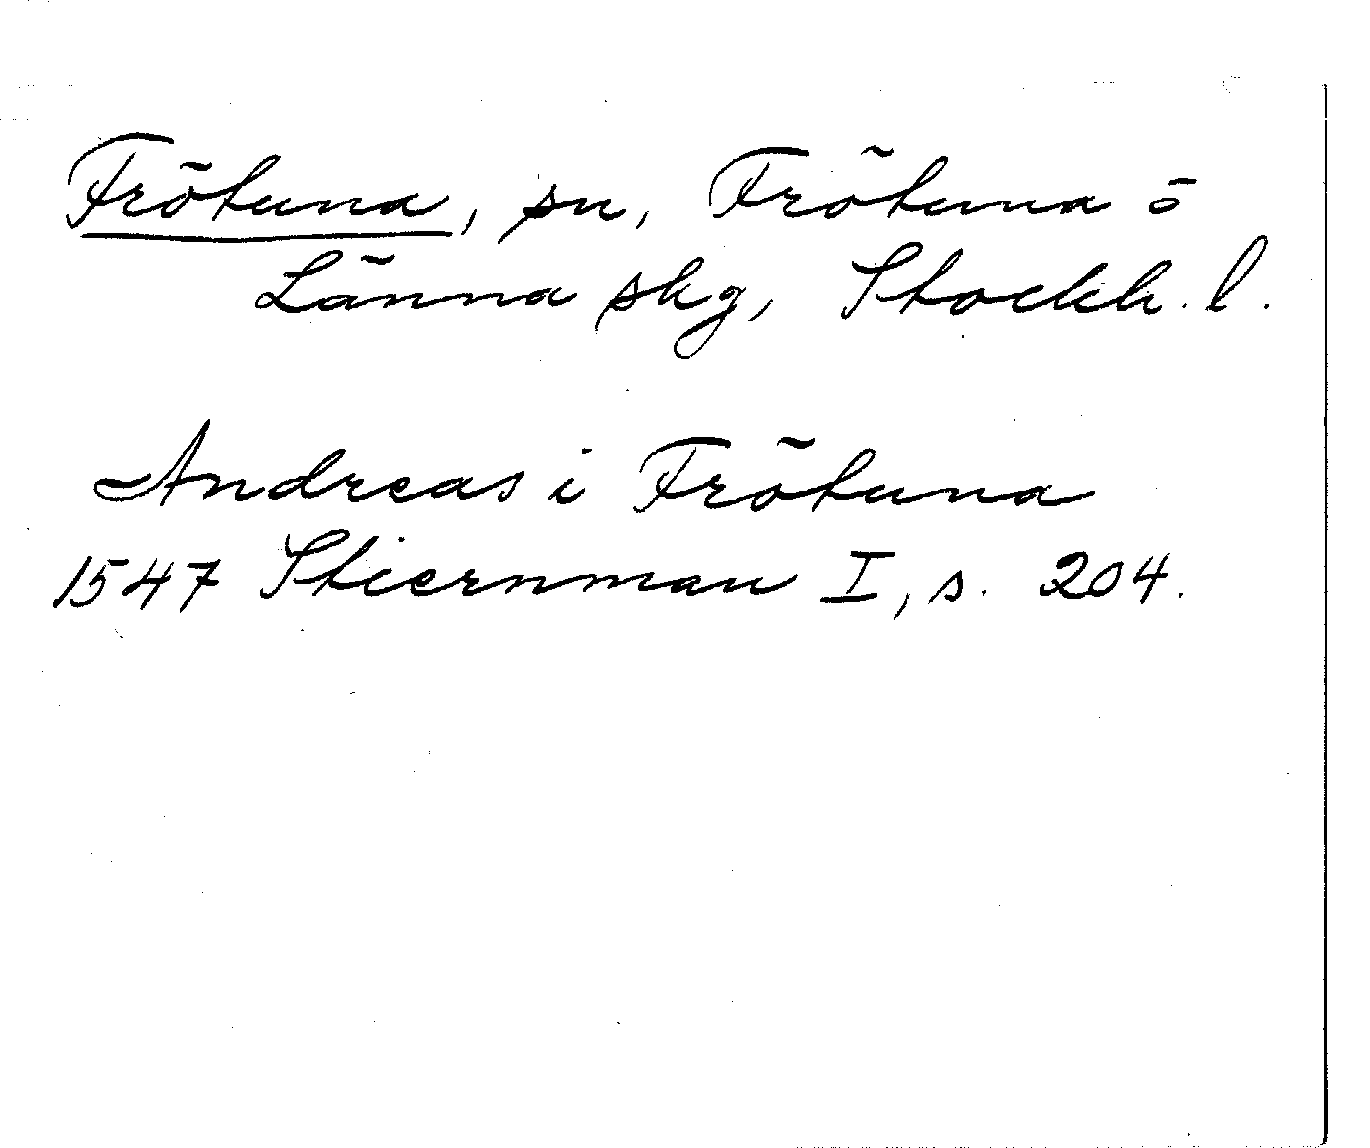 Frötuna, sn, Frötuna o
Länna skg, Stockh. l.
Andreas i Frötuna
1547 Stiernman I, s. 204.